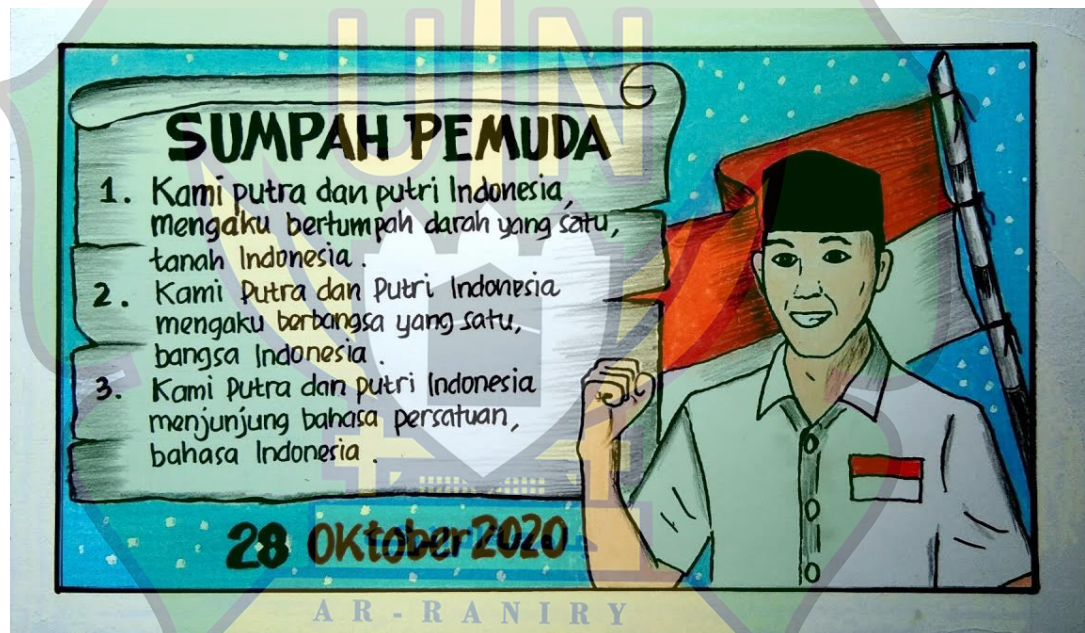 UIN
SUMPAH PEMUDA
1. Kami putra dan putri Indonesia,
mengaku bertumpah darah yang satu,
tanah Indonesia.
2. Kami Putra dan Putri Indonesia
mengaku berbangsa yang satu,
bangsa Indonesia.
3. Kami Putra dan putri Indonesia
menjunjung bahasa persatuan,
bahasa Indonesia.
28 Oktober 2020
AR-RANIRY